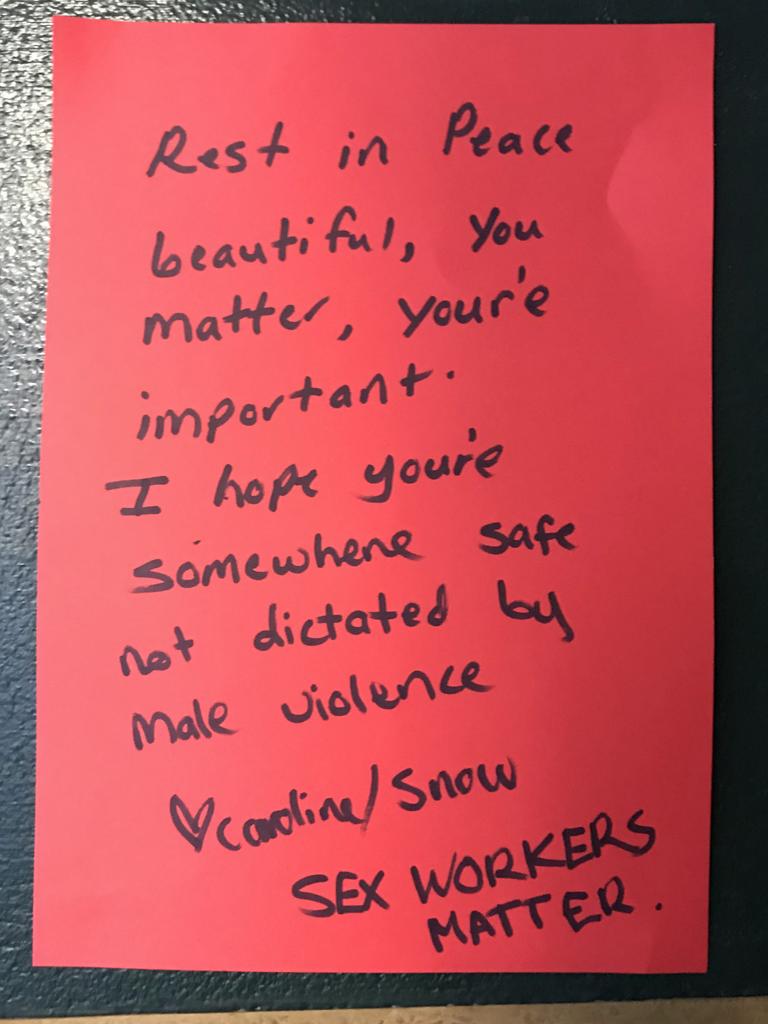 Rest in Peace
beautiful, you
matter, your'e
important.
I hope your'e
somewhere safe
not dictated by
male violence
♡ Caroline/Snow
SEX WORKERS
MATTER.